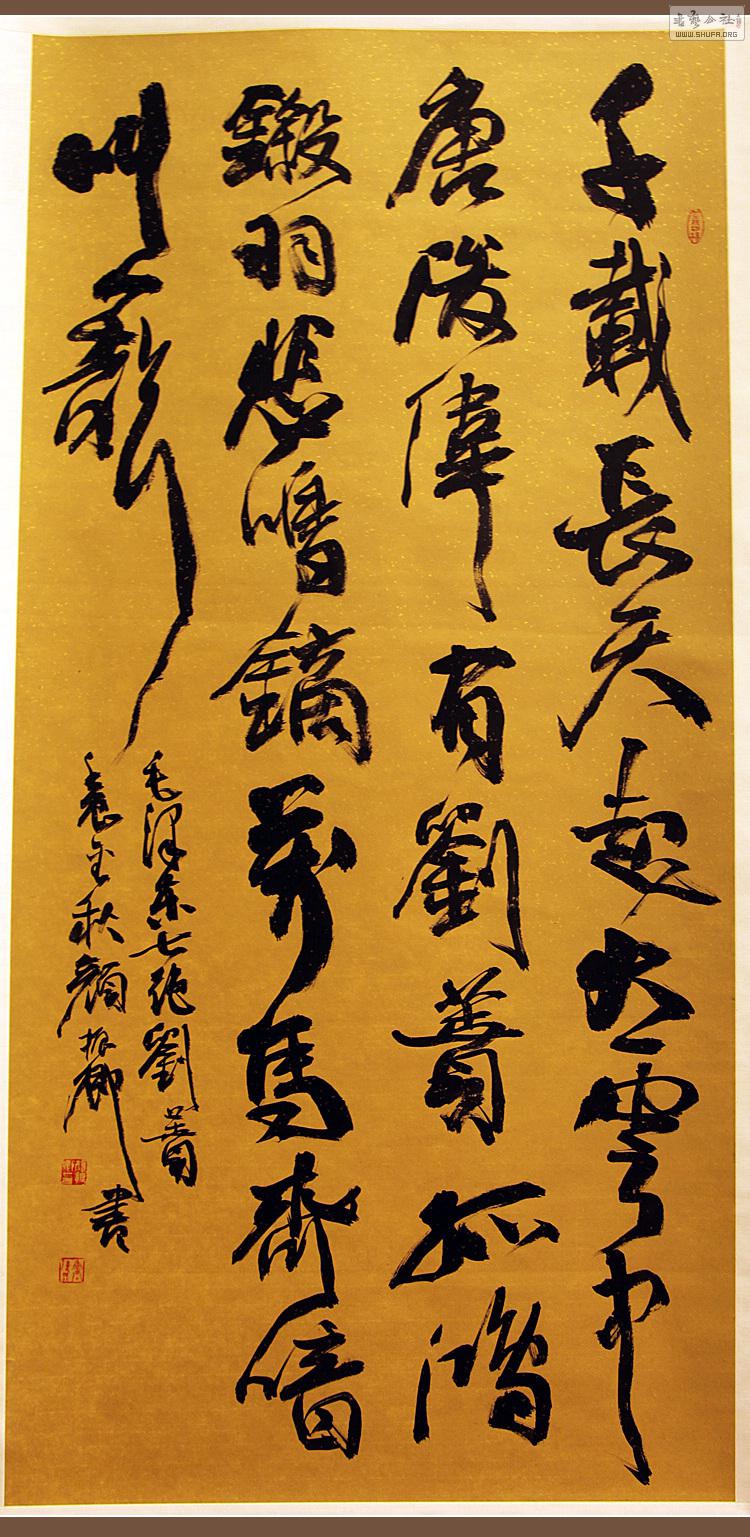 千載長天起大雲中
唐俊偉有劉蕡孤鴻
鎩羽悲鳴鏑萬馬齊喑
叫一聲
毛澤東七絕劉蕡
秋顏振卿書
书艺公社
WWW.SHUFA.ORG